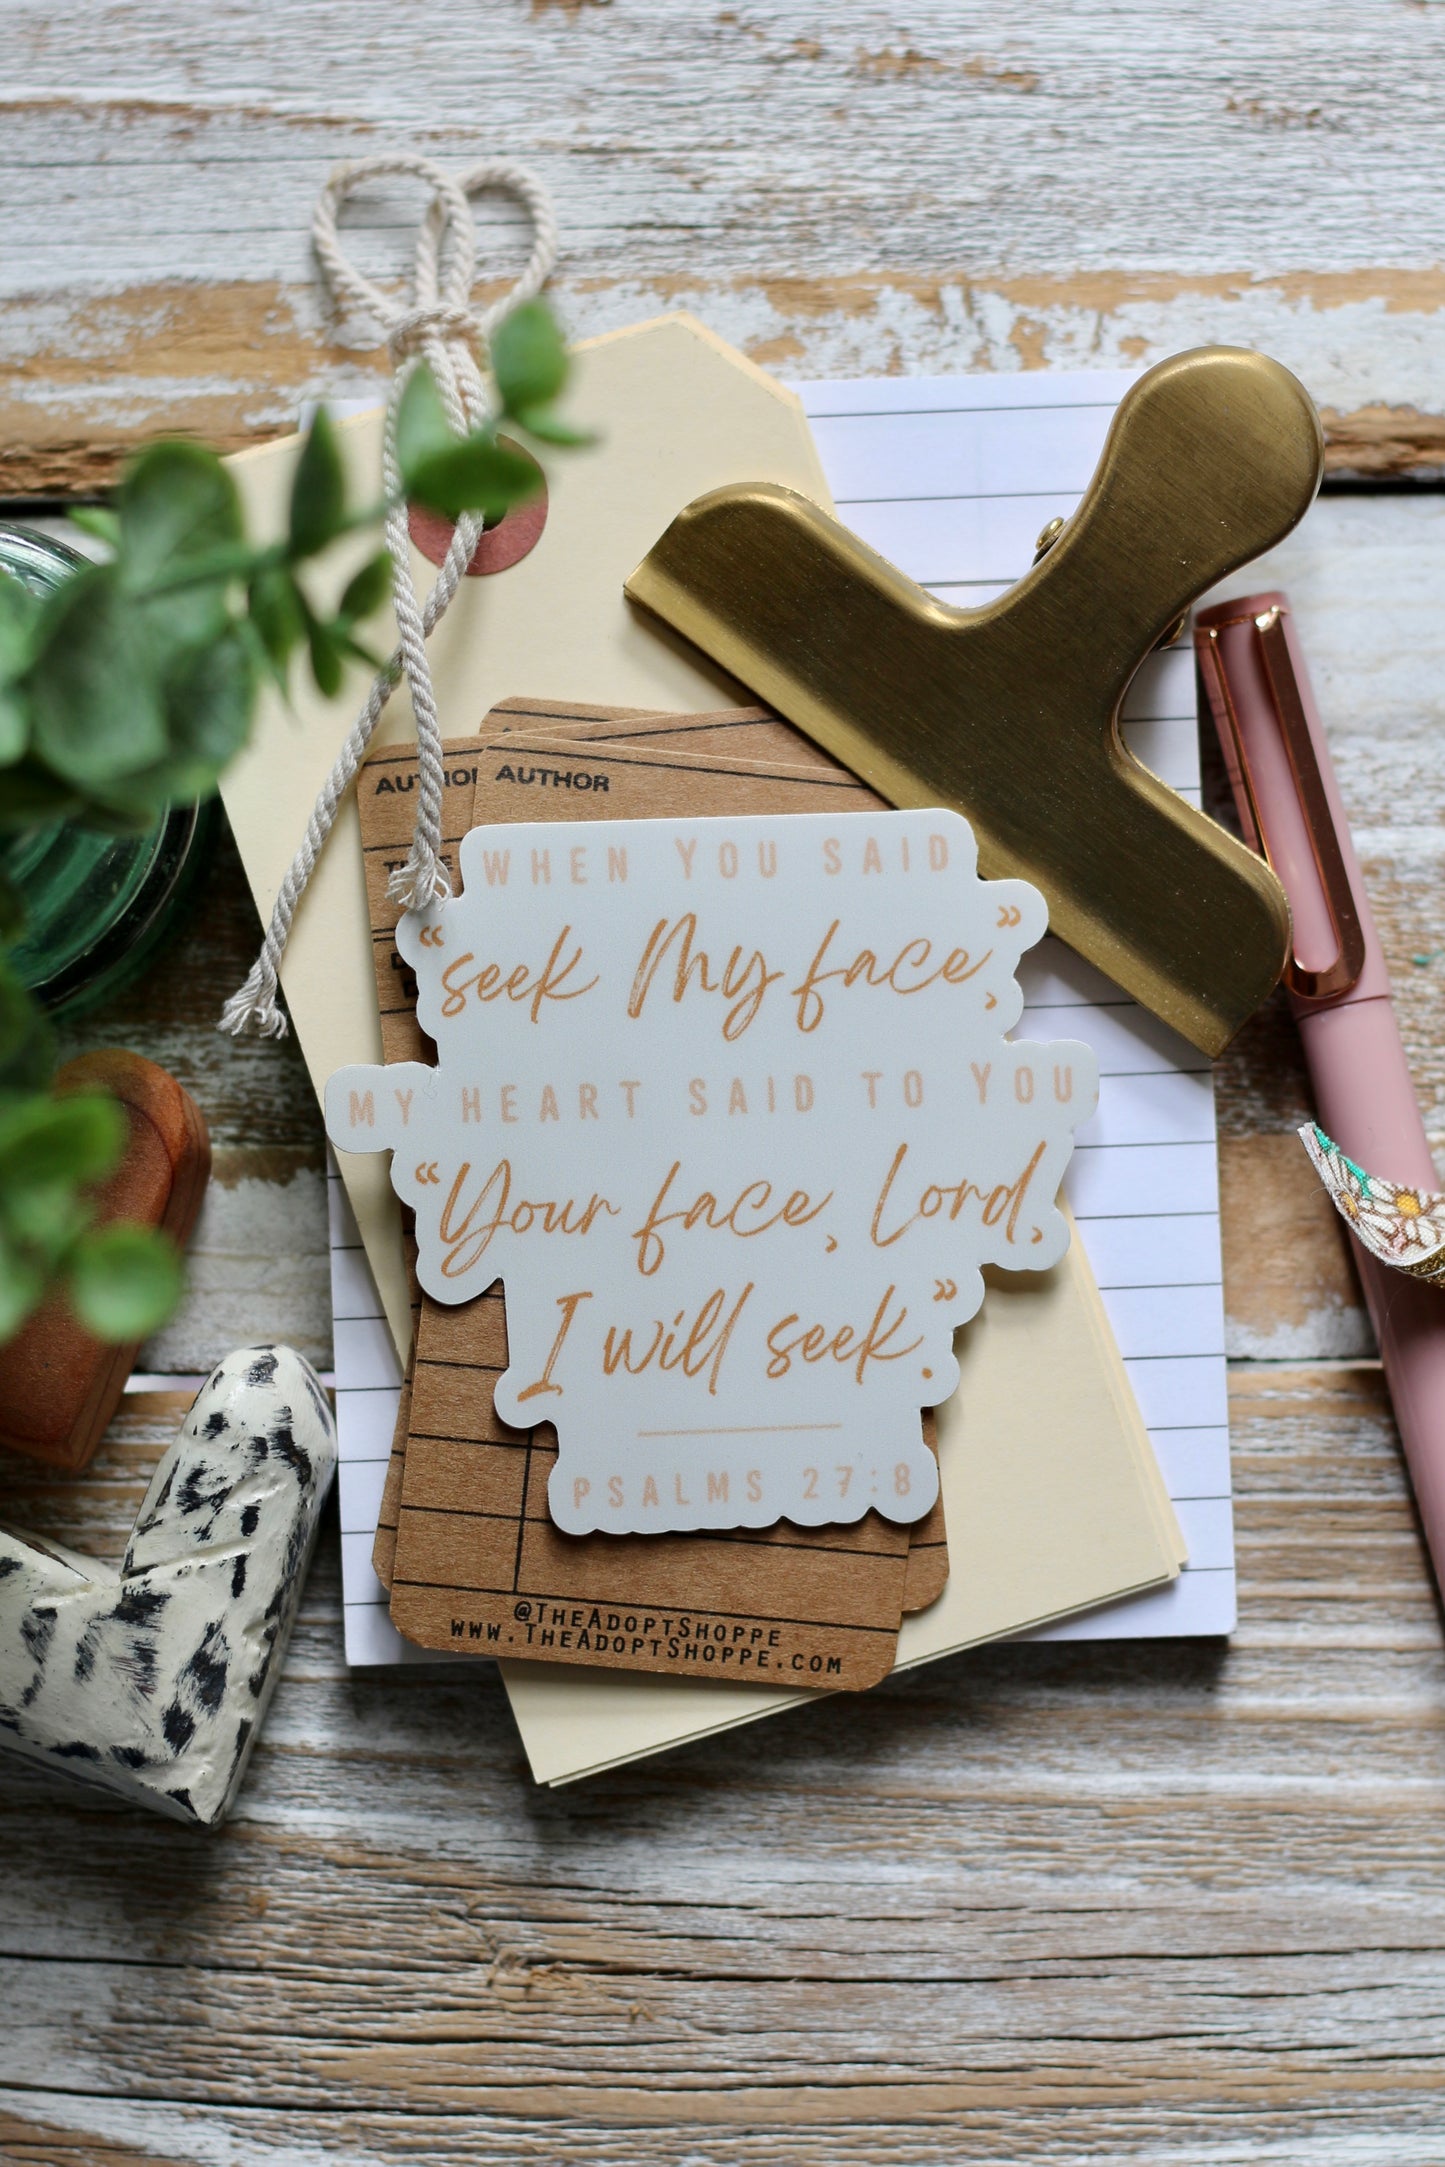 AUTHOR
AUTHOR
WHEN YOU SAID
“seek My face,”
MY HEART SAID TO YOU,
“Your face, Lord,
I will seek.”
PSALMS 27:8
@TheAdoptShoppe
www.TheAdoptShoppe.com